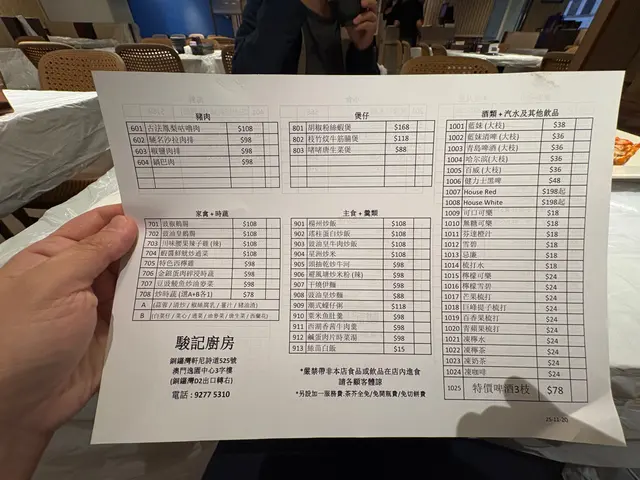 豬肉
601 古法鳳梨咕嚕肉 $108
602 馳名沙拉肉排 $98
603 椒鹽肉排 $98
604 鍋巴肉 $98
煲仔
801 胡椒粉絲蝦煲 $168
802 枝竹炆牛筋腩煲 $118
803 啫啫唐生菜煲 $88
酒類 + 汽水及其他飲品
1001 藍妹 (大枝) $38
1002 藍妹清啤 (大枝) $36
1003 青島啤酒 (大枝) $36
1004 哈尔濱(大枝) $36
1005 百威 (大枝) $36
1006 健力士黑啤 $48
1007 House Red $198起
1008 House White $198起
1009 可口可樂 $18
1010 無糖可樂 $18
1011 芬達橙汁 $18
1012 雪碧 $18
1013 忌廉 $18
1014 梳打水 $18
1015 檸檬可樂 $24
1016 檸檬雪碧 $24
1017 芒果梳打 $24
1018 巨峰提子梳打 $24
1019 百香果梳打 $24
1020 青蘋果梳打 $24
1021 凍檸水 $24
1022 凍檸茶 $24
1023 凍奶茶 $24
1024 凍咖啡 $24
1025 特價啤酒3枝 $78
家禽 + 時蔬
701 豉椒鵝腸 $108
702 豉油皇鵝腸 $108
703 川味腰果辣子雞 (辣) $108
704 蝦醬鮮魷炒通菜 $108
705 特色西檸雞 $98
706 金銀蛋肉碎浸時蔬 $98
707 豆豉鯪魚炒油麥菜 $98
708 炒時蔬 (選A+B各1) $78
A (蒜蓉 / 清炒 / 椒絲腐乳 / 薑汁 / 豬油渣)
B (白菜仔 / 菜心 / 通菜 / 油麥菜 / 唐生菜 / 西蘭花)
主食 + 羹類
901 楊州炒飯 $108
902 瑤柱蛋白炒飯 $108
903 豉油皇牛肉炒飯 $108
904 星洲炒米 $108
905 頭抽乾炒牛河 $98
906 避風塘炒米粉 (辣) $98
907 干燒伊麵 $98
908 豉油皇炒麵 $88
909 潮式蠔仔粥 $98
910 粟米魚肚羹 $98
911 西湖香茜牛肉羹 $98
912 鹹蛋肉片時菜湯 $98
913 絲苗白飯 $15
駿記廚房
銅鑼灣軒尼詩道525號
澳門逸園中心3字樓
(銅鑼灣D2出口轉右)
電話 : 9277 5310
*嚴禁帶非本店食品或飲品在店內進食
請各顧客體諒
*另設加一服務費.茶芥全免/免開瓶費/免切餅費